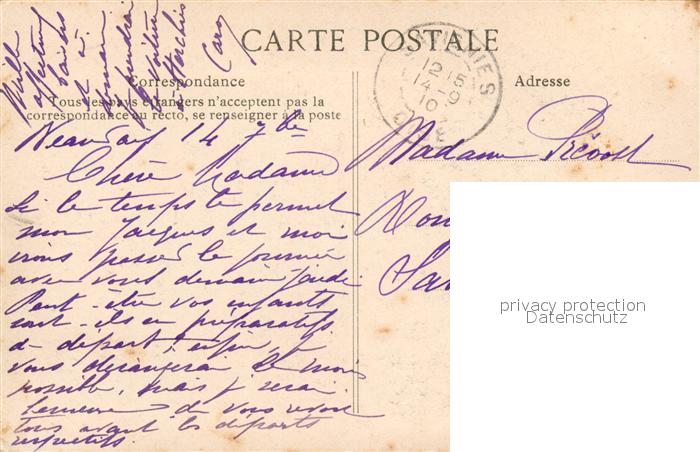 CARTE POSTALE
Correspondance
Tous les pays étrangers n'acceptent pas la
correspondance au recto, se renseigner à la poste
Adresse
Mille
affectueux
à
demain
Caro
14 7bre
Chère Madame
Si le temps le permet
mon Jacques et moi
irons passer la journée
avec vous demain jeudi
Peut-être vos enfants
sont-ils en préparatifs
de départ; enfin, je
vous dérangerai le moins
possible, mais je serai
heureuse de vous revoir
tous avant les départs
respectifs.
12 15
14 - 9
10
OISE
Madame Prévost
privacy protection
Datenschutz